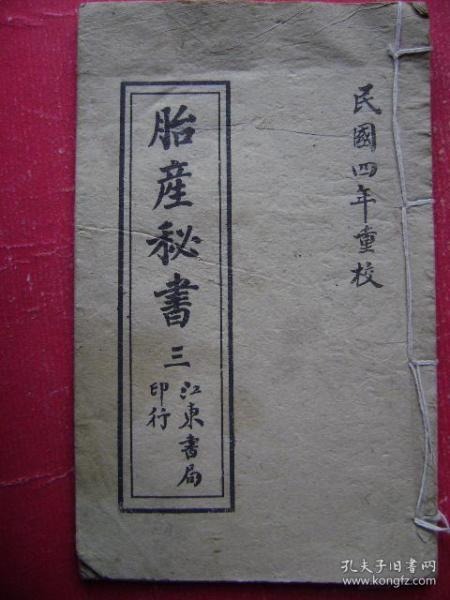 民國四年重校
胎產秘書 三
江東書局
印行
孔夫子旧书网
www.kongfz.com